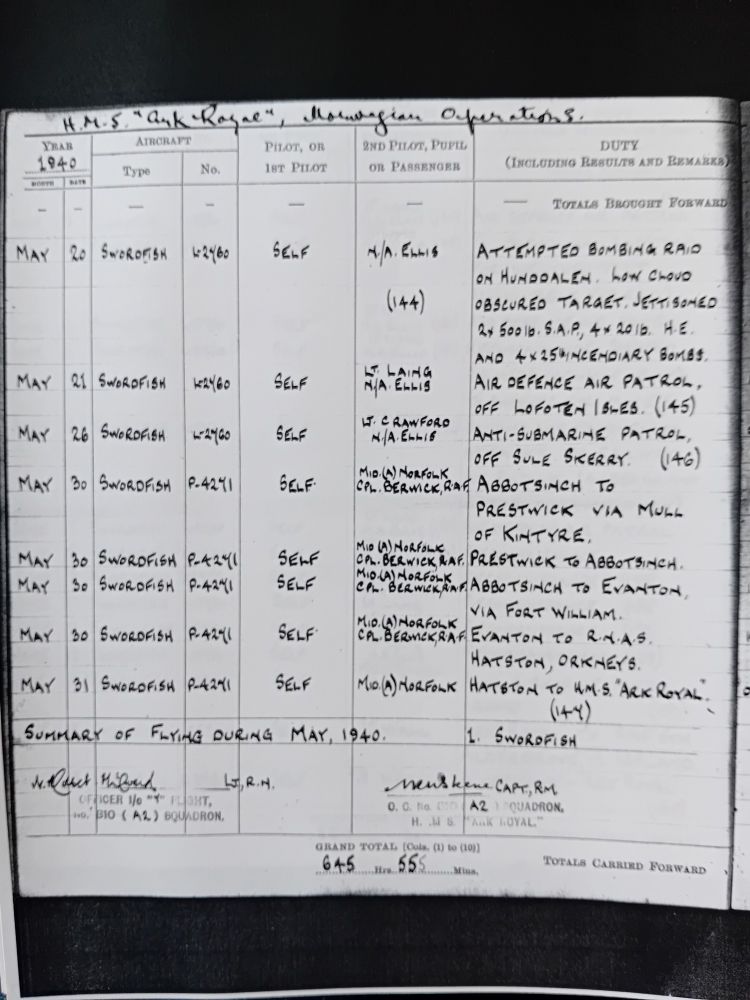 H.M.S. "Ark Royal", Norwegian Operations.
YEAR AIRCRAFT PILOT, OR 2ND PILOT, PUPIL DUTY
1940 Type No. 1ST PILOT OR PASSENGER (INCLUDING RESULTS AND REMARKS)
MONTH DATE
— — — — — — — TOTALS BROUGHT FORWARD
MAY 20 SWORDFISH L-2760 SELF N/A. ELLIS ATTEMPTED BOMBING RAID
ON HUNDDALEN. LOW CLOUD
(144) OBSCURED TARGET. JETTISONED
2x 500lb. S.A.P., 4x 20lb. H.E.
AND 4x25lb INCENDIARY BOMBS.
LT. LAING
MAY 21 SWORDFISH L-2760 SELF N/A. ELLIS AIR DEFENCE AIR PATROL,
OFF LOFOTEN ISLES. (145)
LT. CRAWFORD
MAY 26 SWORDFISH L-2760 SELF N/A. ELLIS ANTI-SUBMARINE PATROL,
OFF SULE SKERRY. (146)
MID.(A) NORFOLK
MAY 30 SWORDFISH P-4271 SELF. CPL. BERWICK, R.A.F. ABBOTSINCH TO
PRESTWICK VIA MULL
OF KINTYRE.
MID.(A) NORFOLK
MAY 30 SWORDFISH P-4271 SELF CPL. BERWICK, R.A.F. PRESTWICK TO ABBOTSINCH.
MID.(A) NORFOLK
MAY 30 SWORDFISH P-4271 SELF CPL. BERWICK, R.A.F. ABBOTSINCH TO EVANTON,
VIA FORT WILLIAM.
MID.(A) NORFOLK
MAY 30 SWORDFISH P-4271 SELF. CPL. BERWICK, R.A.F. EVANTON TO R.N.A.S.
HATSTON, ORKNEYS.
MAY 31 SWORDFISH P-4271 SELF MID.(A) NORFOLK HATSTON TO H.M.S. "ARK ROYAL".
(147)
SUMMARY OF FLYING DURING MAY, 1940. 1. SWORDFISH
LT, R.N. CAPT, RM
OFFICER I/c "Y" FLIGHT, O. C. No. 810 (A2) SQUADRON,
No. 810 (A2) SQUADRON, H. M. S. "ARK ROYAL."
GRAND TOTAL [Cols. (1) to (10)]
645 Hrs. 55 Mins. TOTALS CARRIED FORWARD